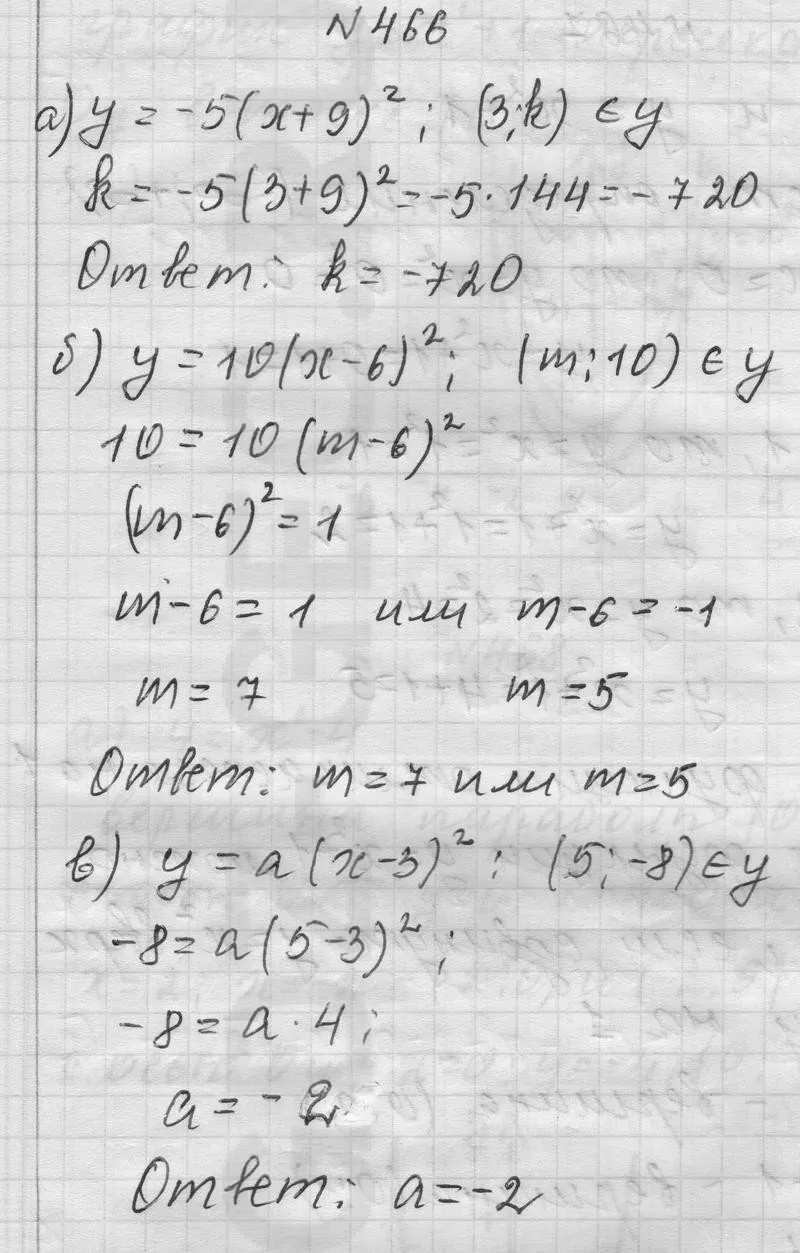 N 466
а) y = -5(x+9)²; (3;k) ∈ y
k = -5(3+9)² = -5·144 = -720
Ответ: k = -720
б) y = 10(x-6)²; (m;10) ∈ y
10 = 10(m-6)²
(m-6)² = 1
m-6 = 1 или m-6 = -1
m = 7 m = 5
Ответ: m = 7 или m = 5
в) y = a(x-3)²; (5;-8) ∈ y
-8 = a(5-3)²;
-8 = a·4;
a = -2
Ответ: a = -2